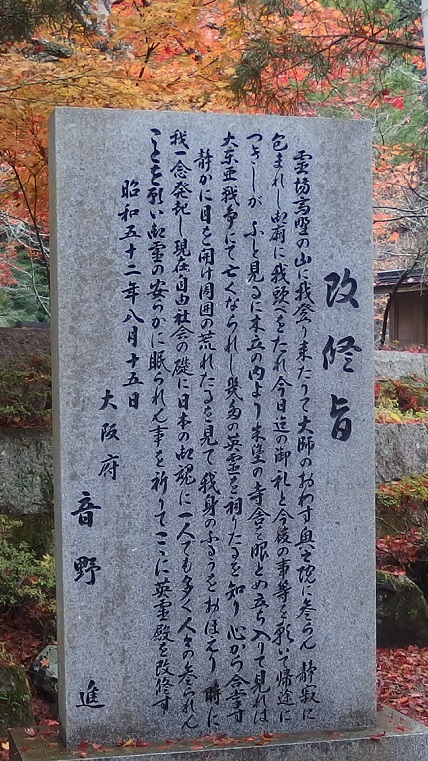 改修旨
霊場高野の山に我登り来たりて大師のおわす奥之院に参らん 静寂に
包まれし御廟に我頭べをたれ今日迄の御礼と今後の事等を願いて帰途に
つきしが ふと見るに木立の内より朱塗の寺舎を眼とめ立ち入りて見れば
大东亜戦争にて亡くなられし幾多の英霊を祠りたるを知り心から合掌す
静かに目を開け周囲の荒れたるを見て我身のふるうをおぼえり 時に
我一念発起し現在自由社会の礎に日本の御魂に一人でも多く人々の参られん
ことを願い御霊の安らかに眠られん事を祈りてここに英霊殿を改修す
昭和五十二年八月十五日
大阪府 音野 進